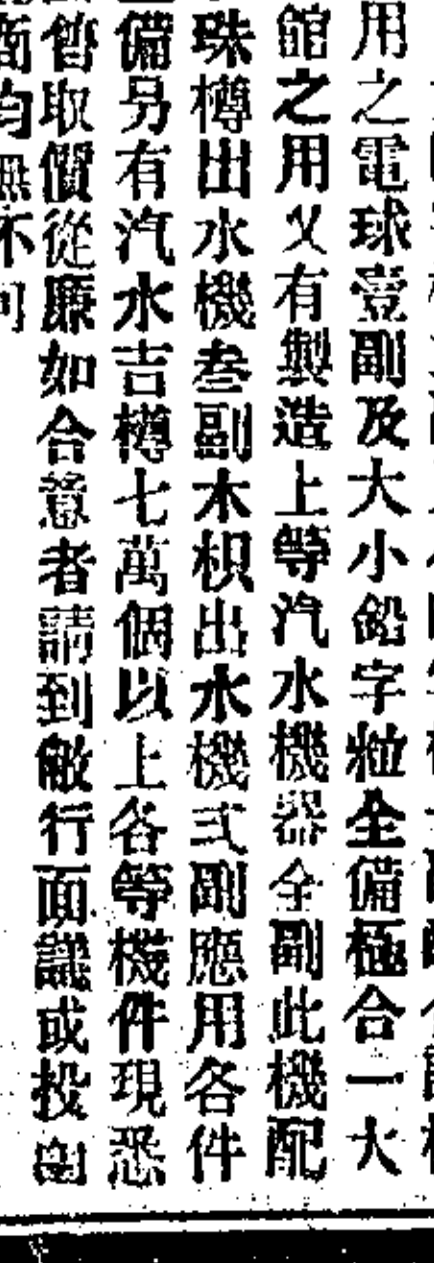 用之電球壹副及大小鉛字粒全備極合一大
館之用又有製造上等汽水機器全副此機配
珠樽出水機叁副木枳出水機弍副應用各件
備另有汽水吉樽七萬個以上各等機件現悉
暫取價從廉如合意者請到敝行面議或投函
商均無不可